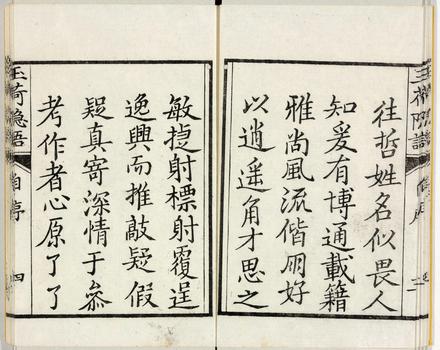 往哲姓名似畏人
知爰有博通載籍
雅尚風流偕朋好
以逍遥角才思之
敏捷射標射覆逞
逸興而推敲疑假
疑真寄深情于叅
考作者心原了了
玉荷隐語
自亭
四